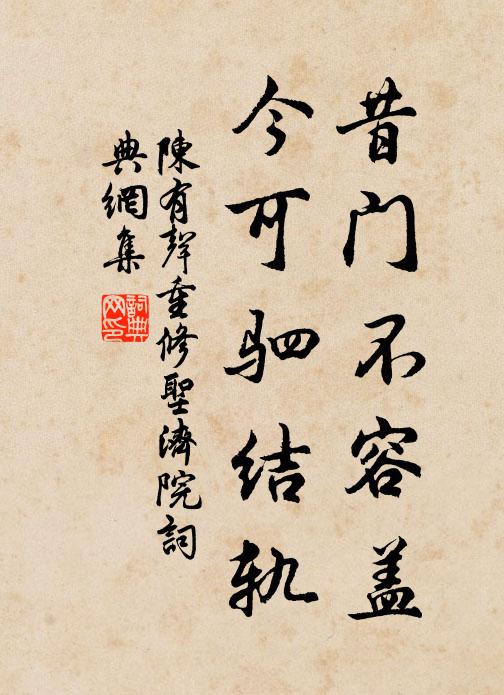 昔门不容盖
今可驷结轨
陳有聲重修聖濟院詞
典網集
詞典网印